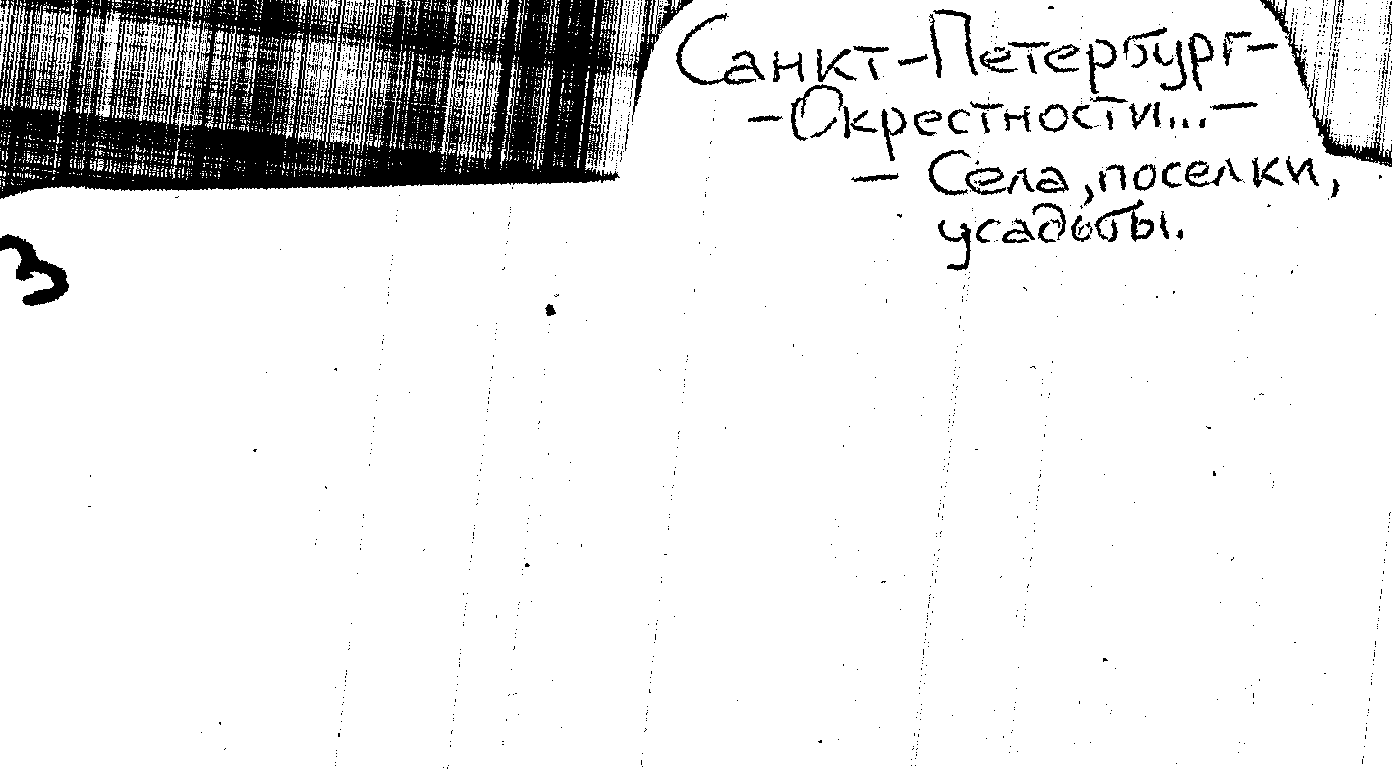 Санкт-Петербург-
-Окрестности...-
- Села, поселки,
усадьбы.
3